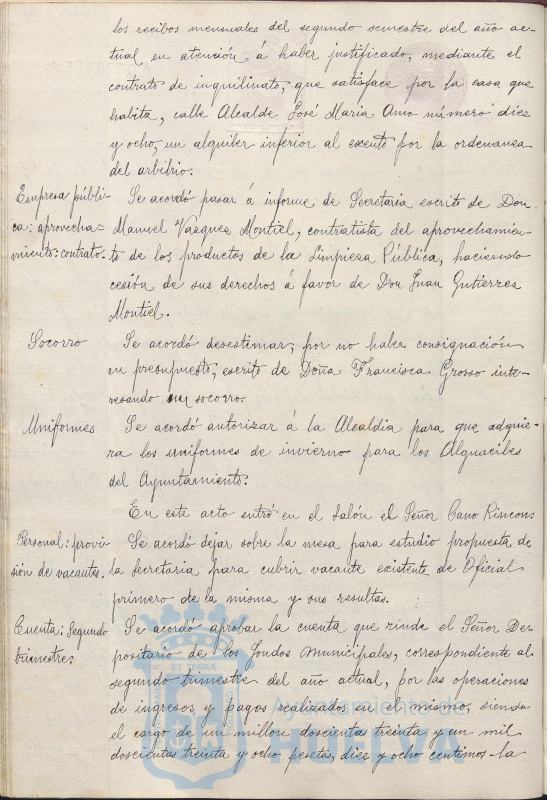 los recibos mensuales del segundo semestre del año ac-
tual en atención á haber justificado, mediante el
contrato de inquilinato, que satisface por la casa que
habita, calle Alcalde José Maria Amo número diez
y ocho, un alquiler inferior al exento por la ordenanza
del arbitrio.
Empresa públi-
ca: aprovecha=
miento: contrato.
Se acordó pasar á informe de Secretaria escrito de Don
Manuel Vazquez Montiel, contratista del aprovechamien-
to de los productos de la Limpieza Pública, haciendo
cesión de sus derechos á favor de Don Juan Gutierrez
Montiel.
Socorro
Se acordó desestimar, por no haber consignación
en presupuesto, escrito de Doña Francisca Grosso inte-
resando un socorro.
Uniformes
Se acordó autorizar á la Alcaldia para que adquie-
ra los uniformes de invierno para los Alguaciles
del Ayuntamiento.
En este acto entró en el salón el Señor Cano Rincon.
Personal: provi-
sión de vacantes.
Se acordó dejar sobre la mesa para estudio propuesta de
la Secretaria para cubrir vacante existente de Oficial
primero de la misma y sus resultas.
Cuenta: Segundo
trimestre:
Se acordó aprobar la cuenta que rinde el Señor De-
positario de los Fondos Municipales, correspondiente al
segundo trimestre del año actual, por las operaciones
de ingresos y pagos realizados en el mismo, siendo
el cargo de un millon doscienta treinta y un mil
doscientas treinta y ocho peseta, diez y ocho centimos la
Ayuntamiento de
HUELVA